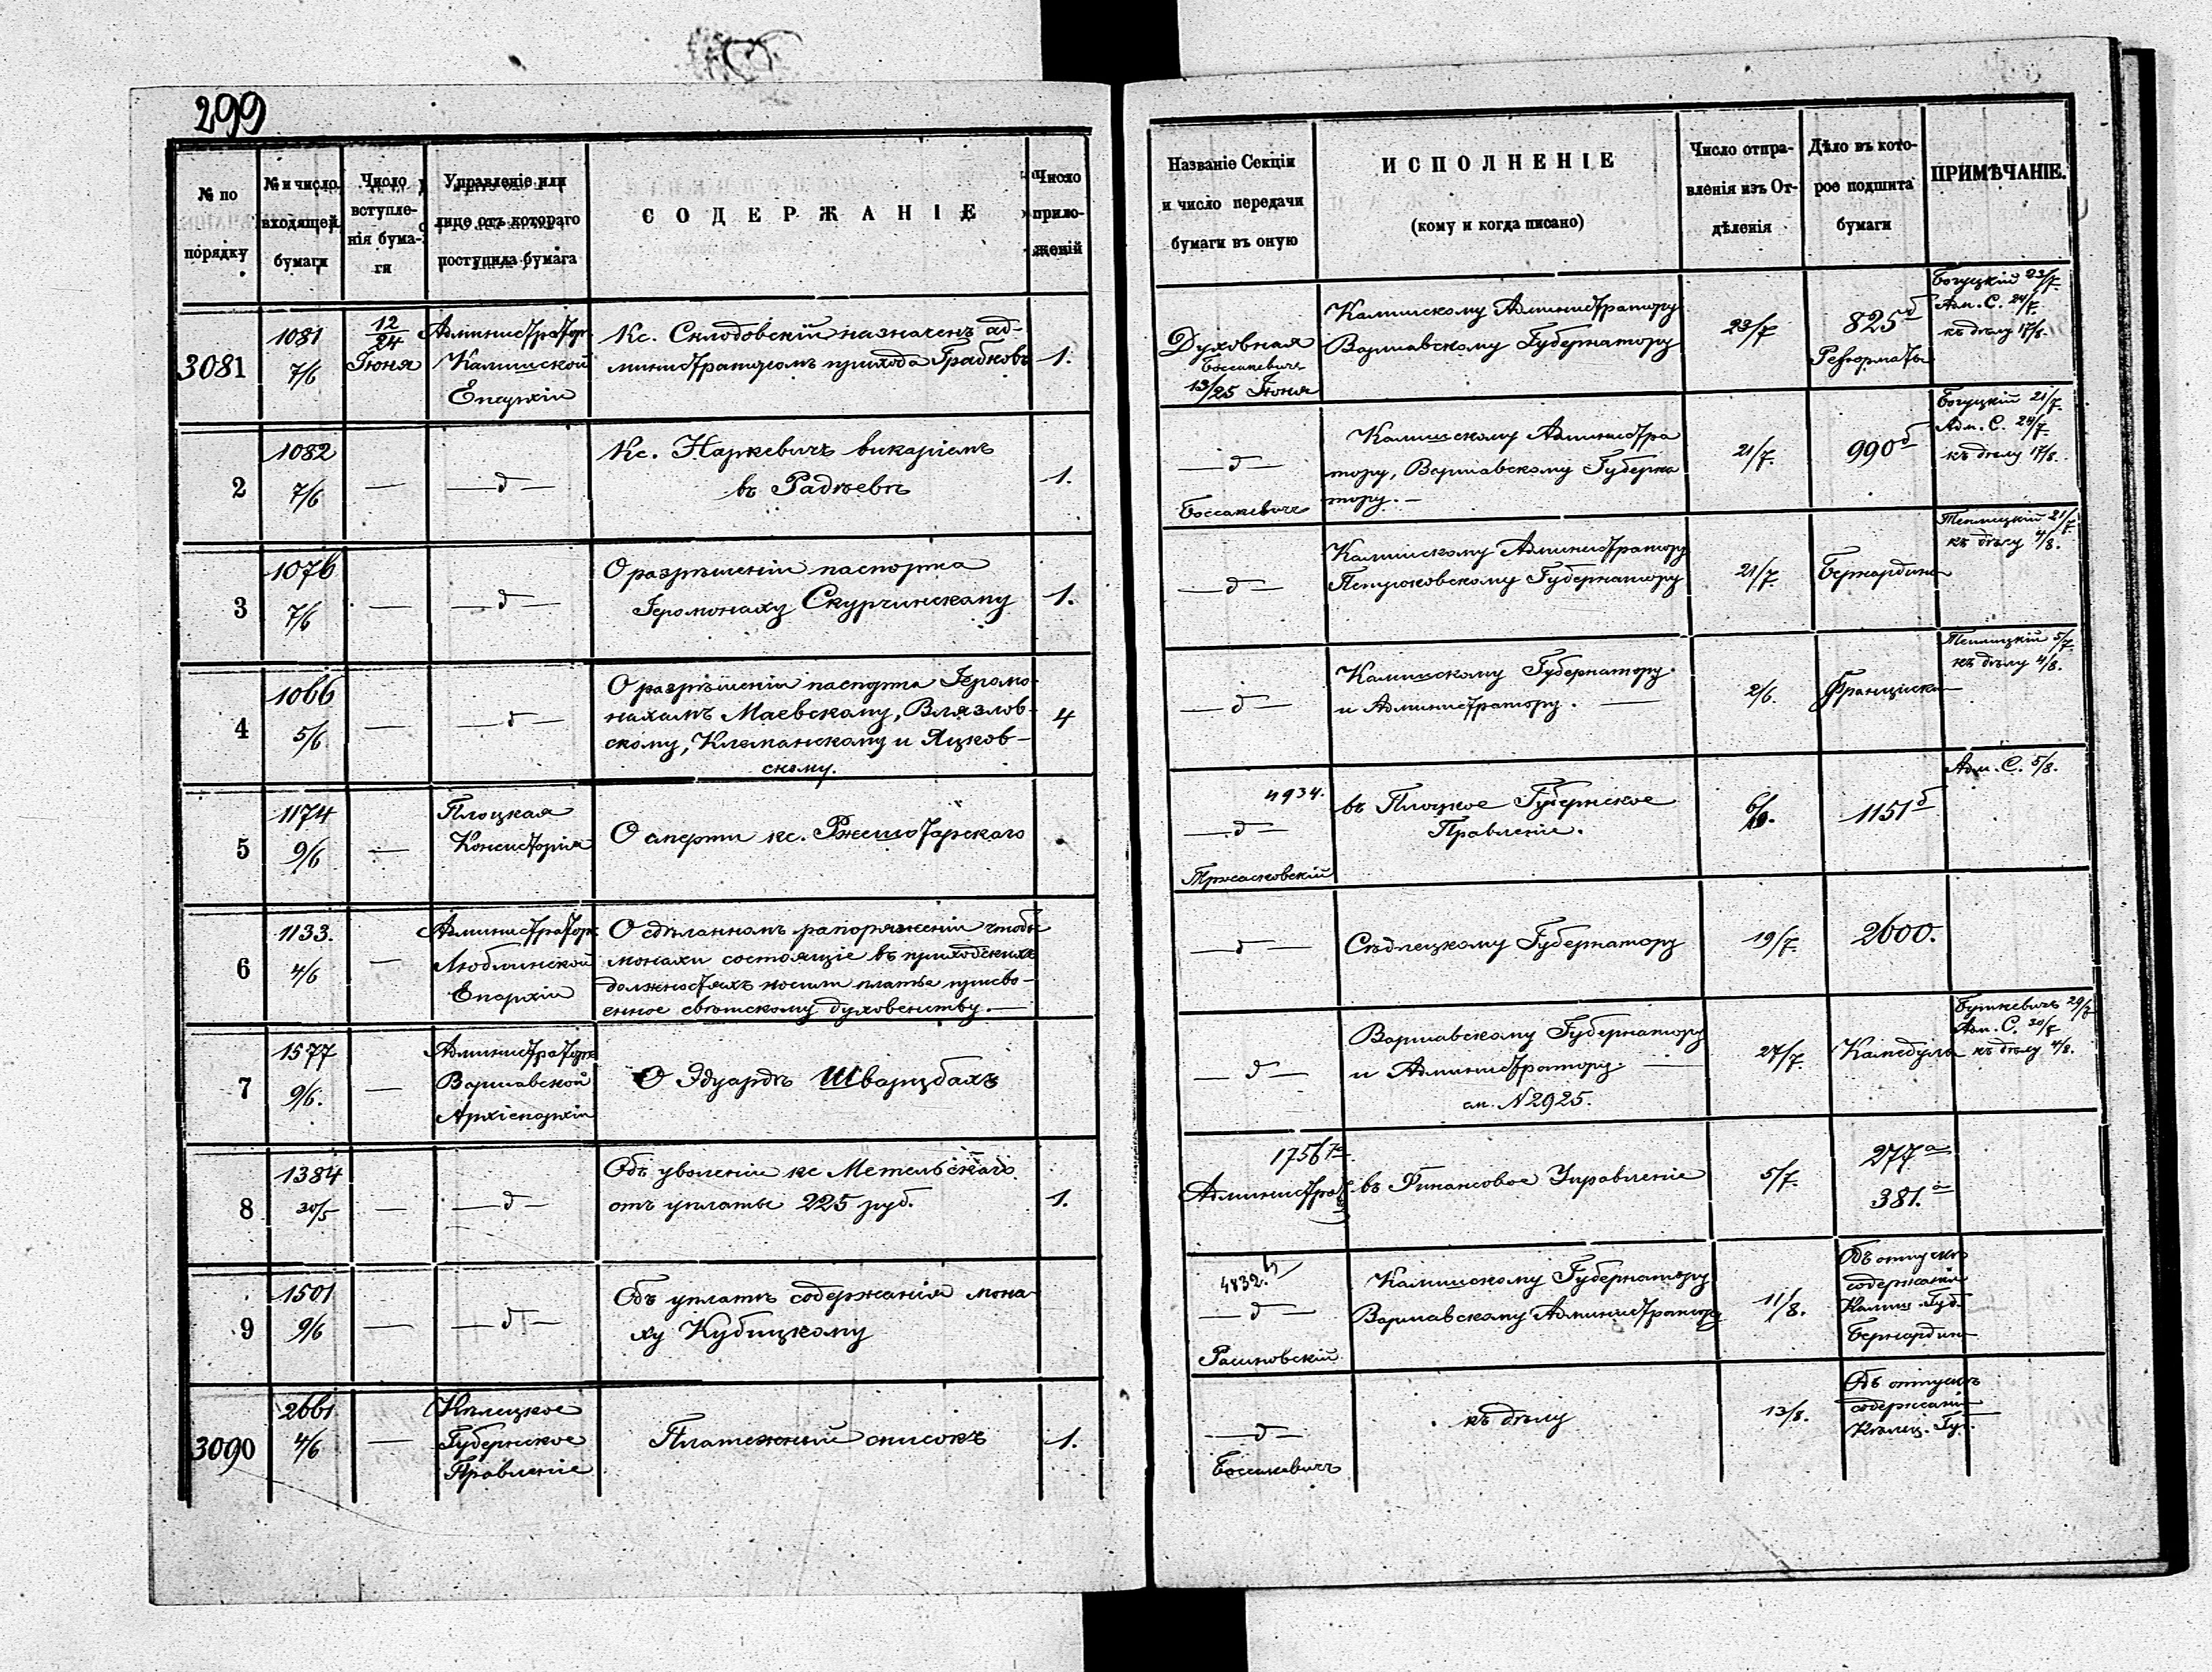 299
№ по порядку
№ и число входящей бумаги
Число вступле-нія бума-ги
Управленіе или лице отъ котораго поступила бумага
СОДЕРЖАНІЕ
Число прило-женій
Названіе Секціи и число передачи бумаги въ оную
ИСПОЛНЕНІЕ
(кому и когда писано)
Число отпра-вленія изъ От-дѣленія
Дѣло въ кото-рое подшита бумаги
ПРИМѢЧАНІЕ.
3081
1081
7/6
12/24
Іюня
Администраторъ
Калишской
Епархіи
Кс. Склодовскій назначенъ ад-
министраторомъ прихода Грабковъ
1.
Духовная
Боссакевичъ
13/25 Іюня
Калишскому Администратору
Варшавскому Губернатору
23/7
825 б
Реформаты
Богуцкій 23/7.
Адм. С. 24/7.
къ дѣлу 17/8.
2
1082
7/6
—
— д —
Кс. Наркевичъ викаріемъ
въ Радѣевѣ
1.
— д —
Боссакевичъ
Калишскому Администра
тору, Варшавскому Губерна
тору. —
21/7.
990 б
Богуцкій 21/7.
Адм. С. 24/7.
къ дѣлу 17/8.
3
1076
7/6
—
— д —
О разрѣшеніи паспорта
Іеромонаху Скурчинскому
1.
— д —
Калишскому Администратору
Петроковскому Губернатору
21/7.
Бернардины
Теплицкій 21/7.
къ дѣлу 4/8.
4
1066
5/6
—
— д —
О разрѣшеніи паспорта Іеромо-
нахамъ Маевскому, Влязлов-
скому, Клеманскому и Яцков-
скому.
4
— д —
Калишскому Губернатору.
и Администратору. —
2/6.
Францискан
Теплицкій 5/7.
къ дѣлу 4/8.
5
1174
9/6
—
Плоцкая
Консисторія
О смерти кс. Ржешотарскаго
4934.
— д —
въ Плоцкое Губернское
Правленіе.
1151 б
Адм. С. 5/8.
6
1133.
4/6
—
Администраторъ
Люблинской
Епархіи
О сдѣланномъ рапоряженіи чтобы
монахи состоящіе въ приходскихъ
должностяхъ носили платье присво-
енное свѣтскому духовенству. —
— д —
Сѣдлецкому Губернатору
19/7.
2600.
7
1577
9/6.
—
Администраторъ
Варшавской
Архіепархіи
О Эдуардѣ Шварцбахъ
— д —
Варшавскому Губернатору
и Администратору. —
см. N 2925.
27/7.
Камедулы
Буткевичъ 29/7
Адм. С. 30/7
къ дѣлу 4/8.
8
1384
30/5
—
— д —
Объ уволеніи кс Метельскаго
отъ уплаты 225 руб.
1.
1756
въ Финансовое Управленіе
5/7.
277 а
381. а
9
1501
9/6
—
— д —
Объ уплатѣ содержанія мона-
ху Кубицкому
4832.
— д —
Калишскому Губернатору
Варшавскому Администратору
11/8.
Объ отпускѣ
содержанія
Калиш. Губ.
Бернардин
3090
2661
4/6
—
Кѣлецкое
Губернское
Правленіе
Платежный списокъ
1.
— д —
Боссакевичъ
къ дѣлу
13/8.
Объ отпускѣ
содержанія
Кѣлец. Губ.